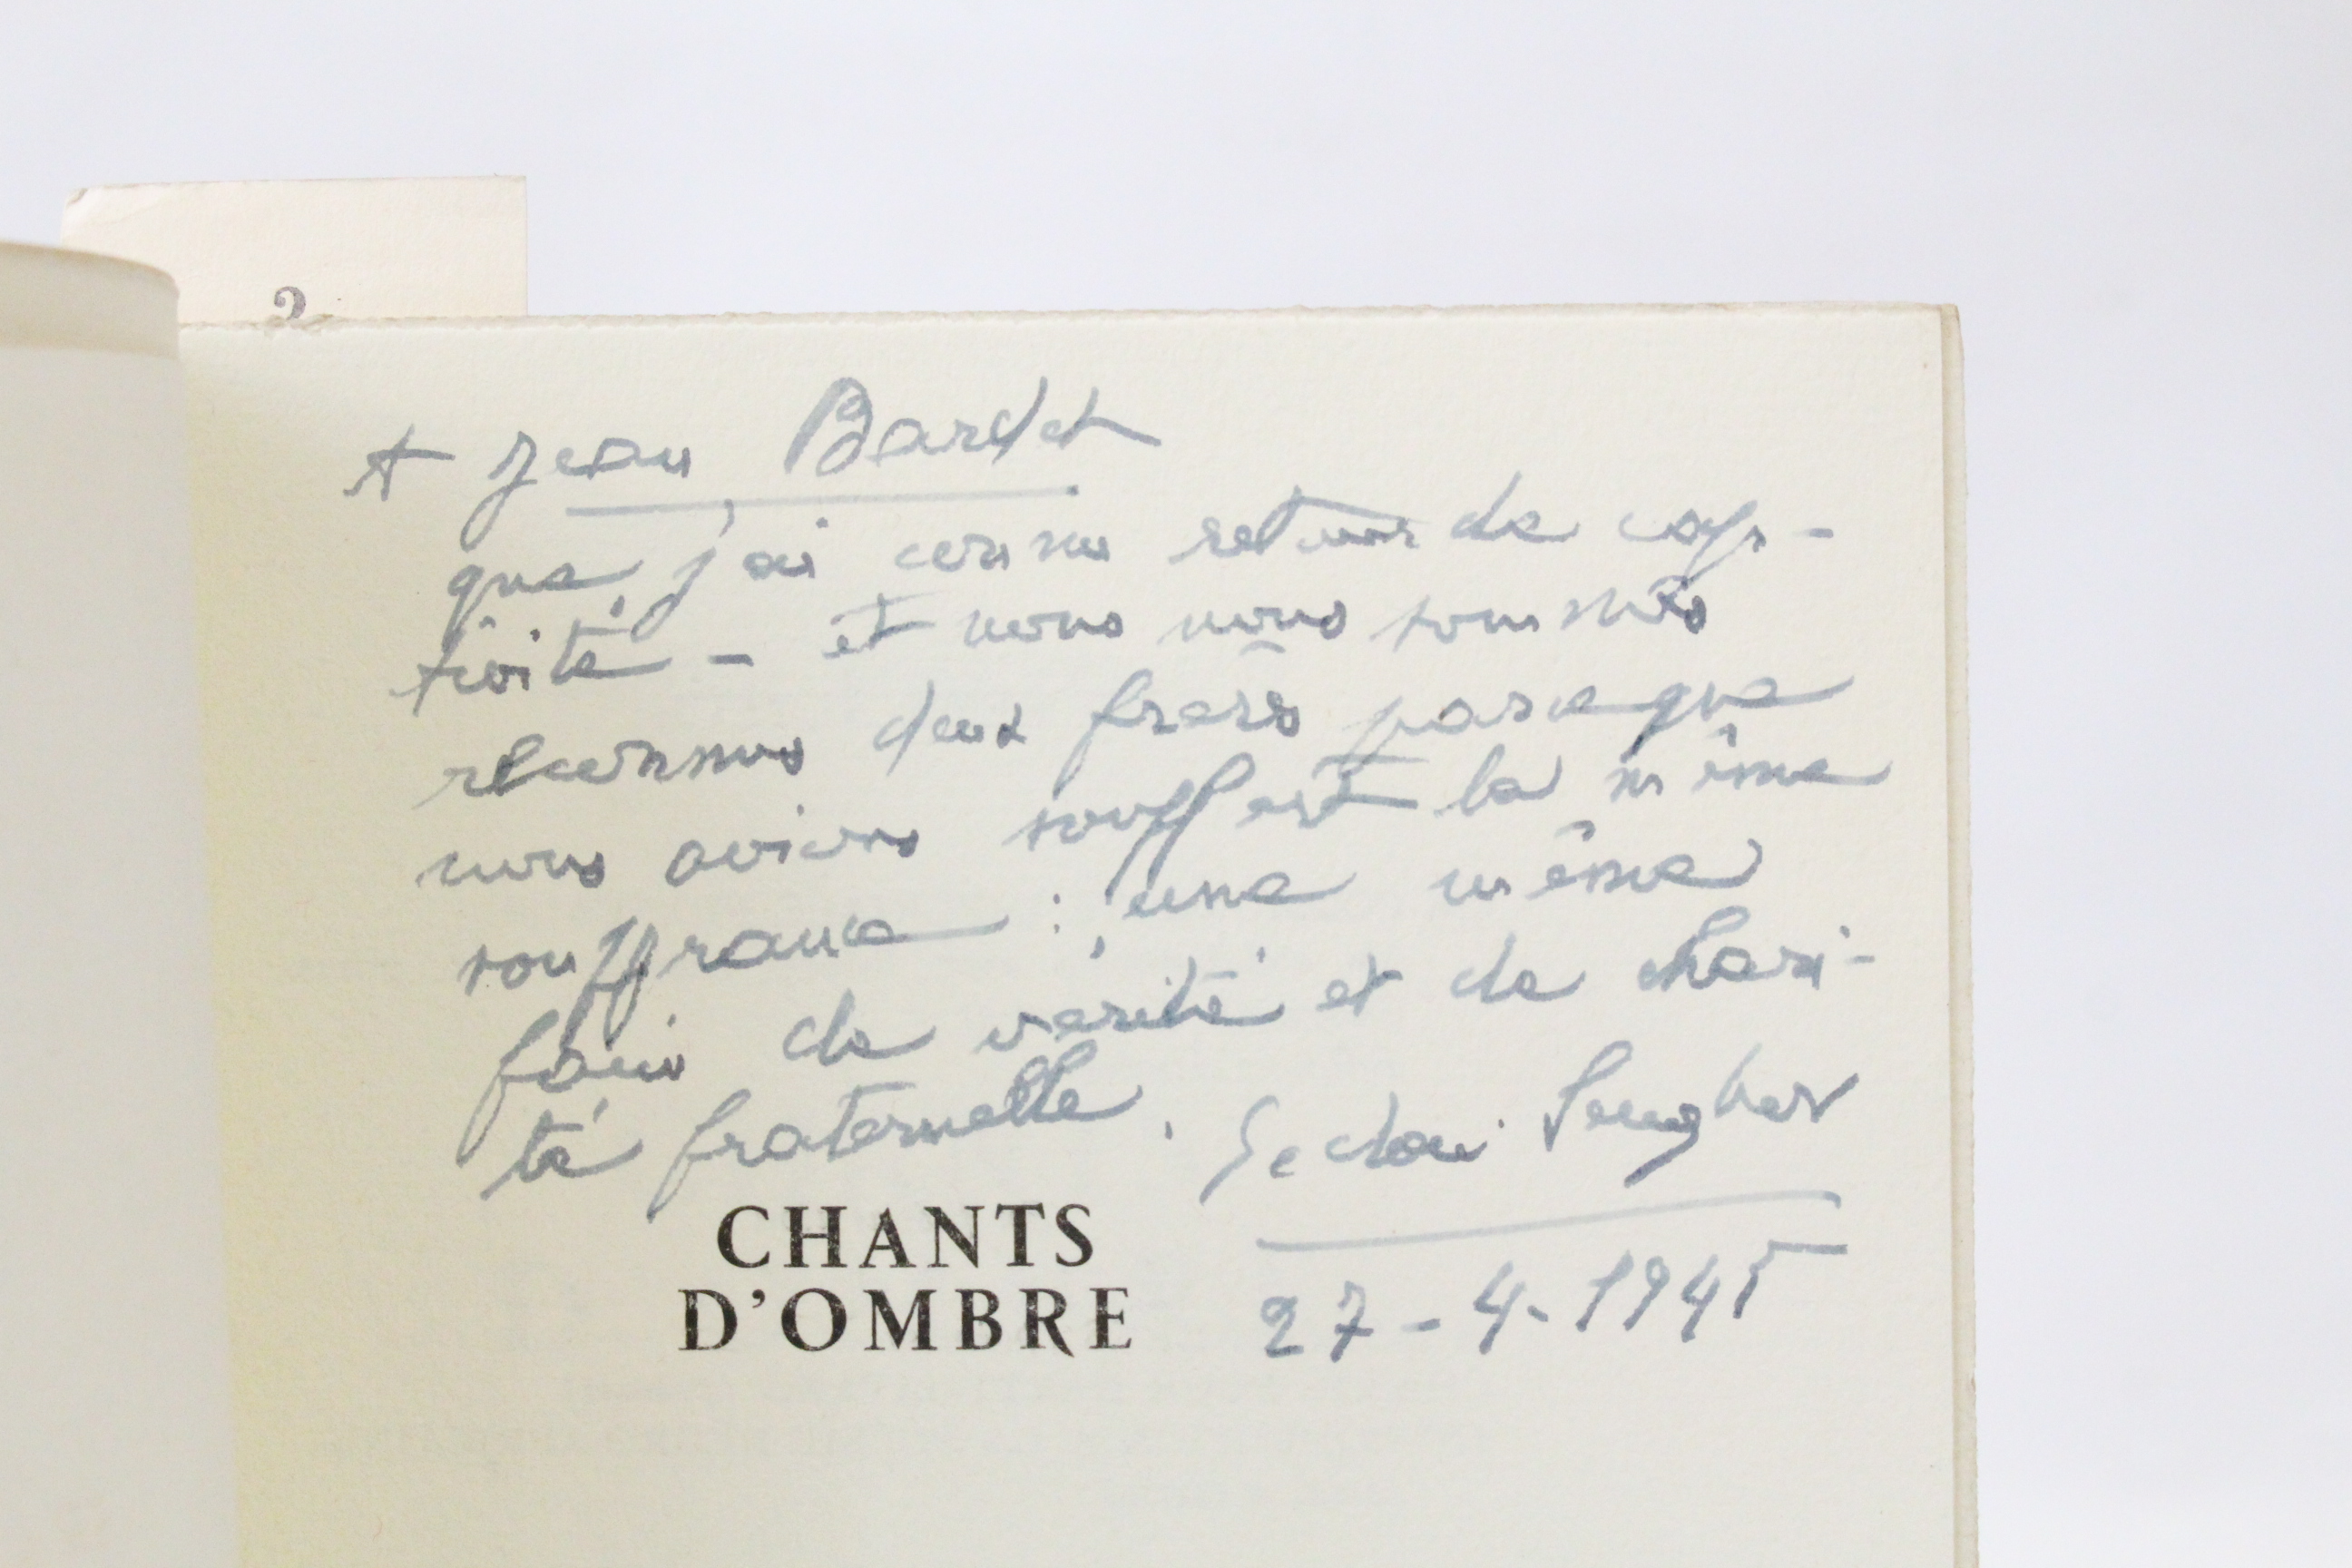 ?
A Jean Bardet
que j'ai connu retour de cap-
tivité - et nous nous sommes
reconnus deux frères parce que
nous avions souffert la même
souffrance : une même
faim de vérité et de chari-
té fraternelle.
Sédar Senghor
CHANTS
D'OMBRE
27-4-1945